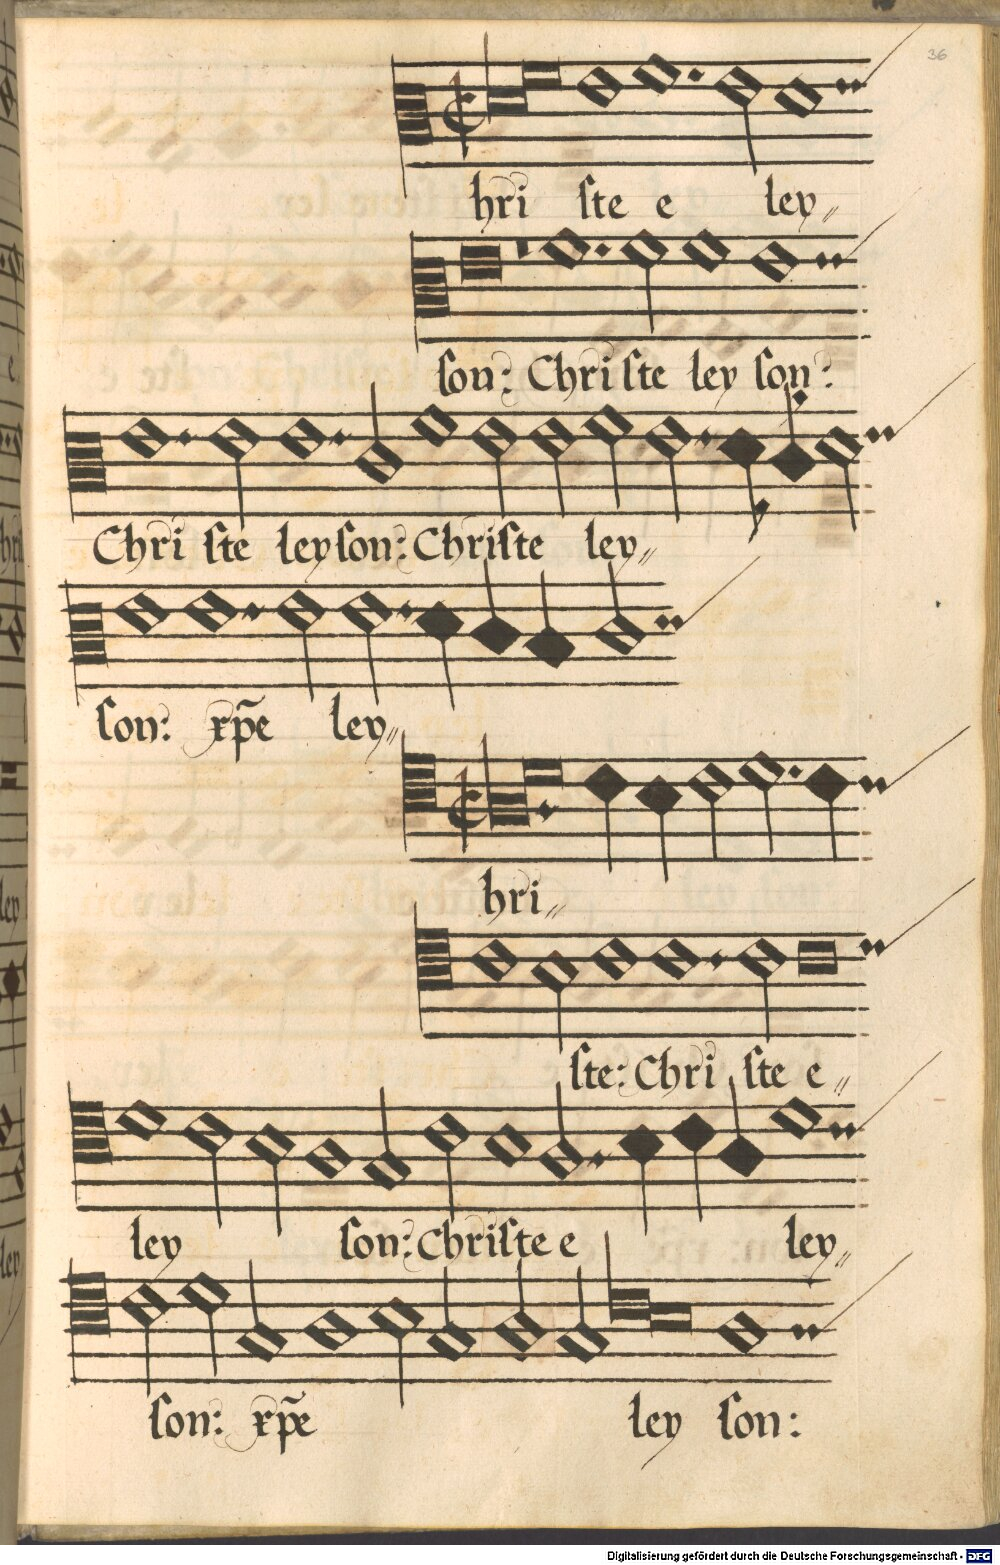 36
hri ste e ley
son: Christe ley son:
Christe leyson: Christe ley
son: xp̄e ley
hri
ste: Christe e
ley son: Christe e ley
son: xp̄e ley son:
Digitalisierung gefördert durch die Deutsche Forschungsgemeinschaft - DFG